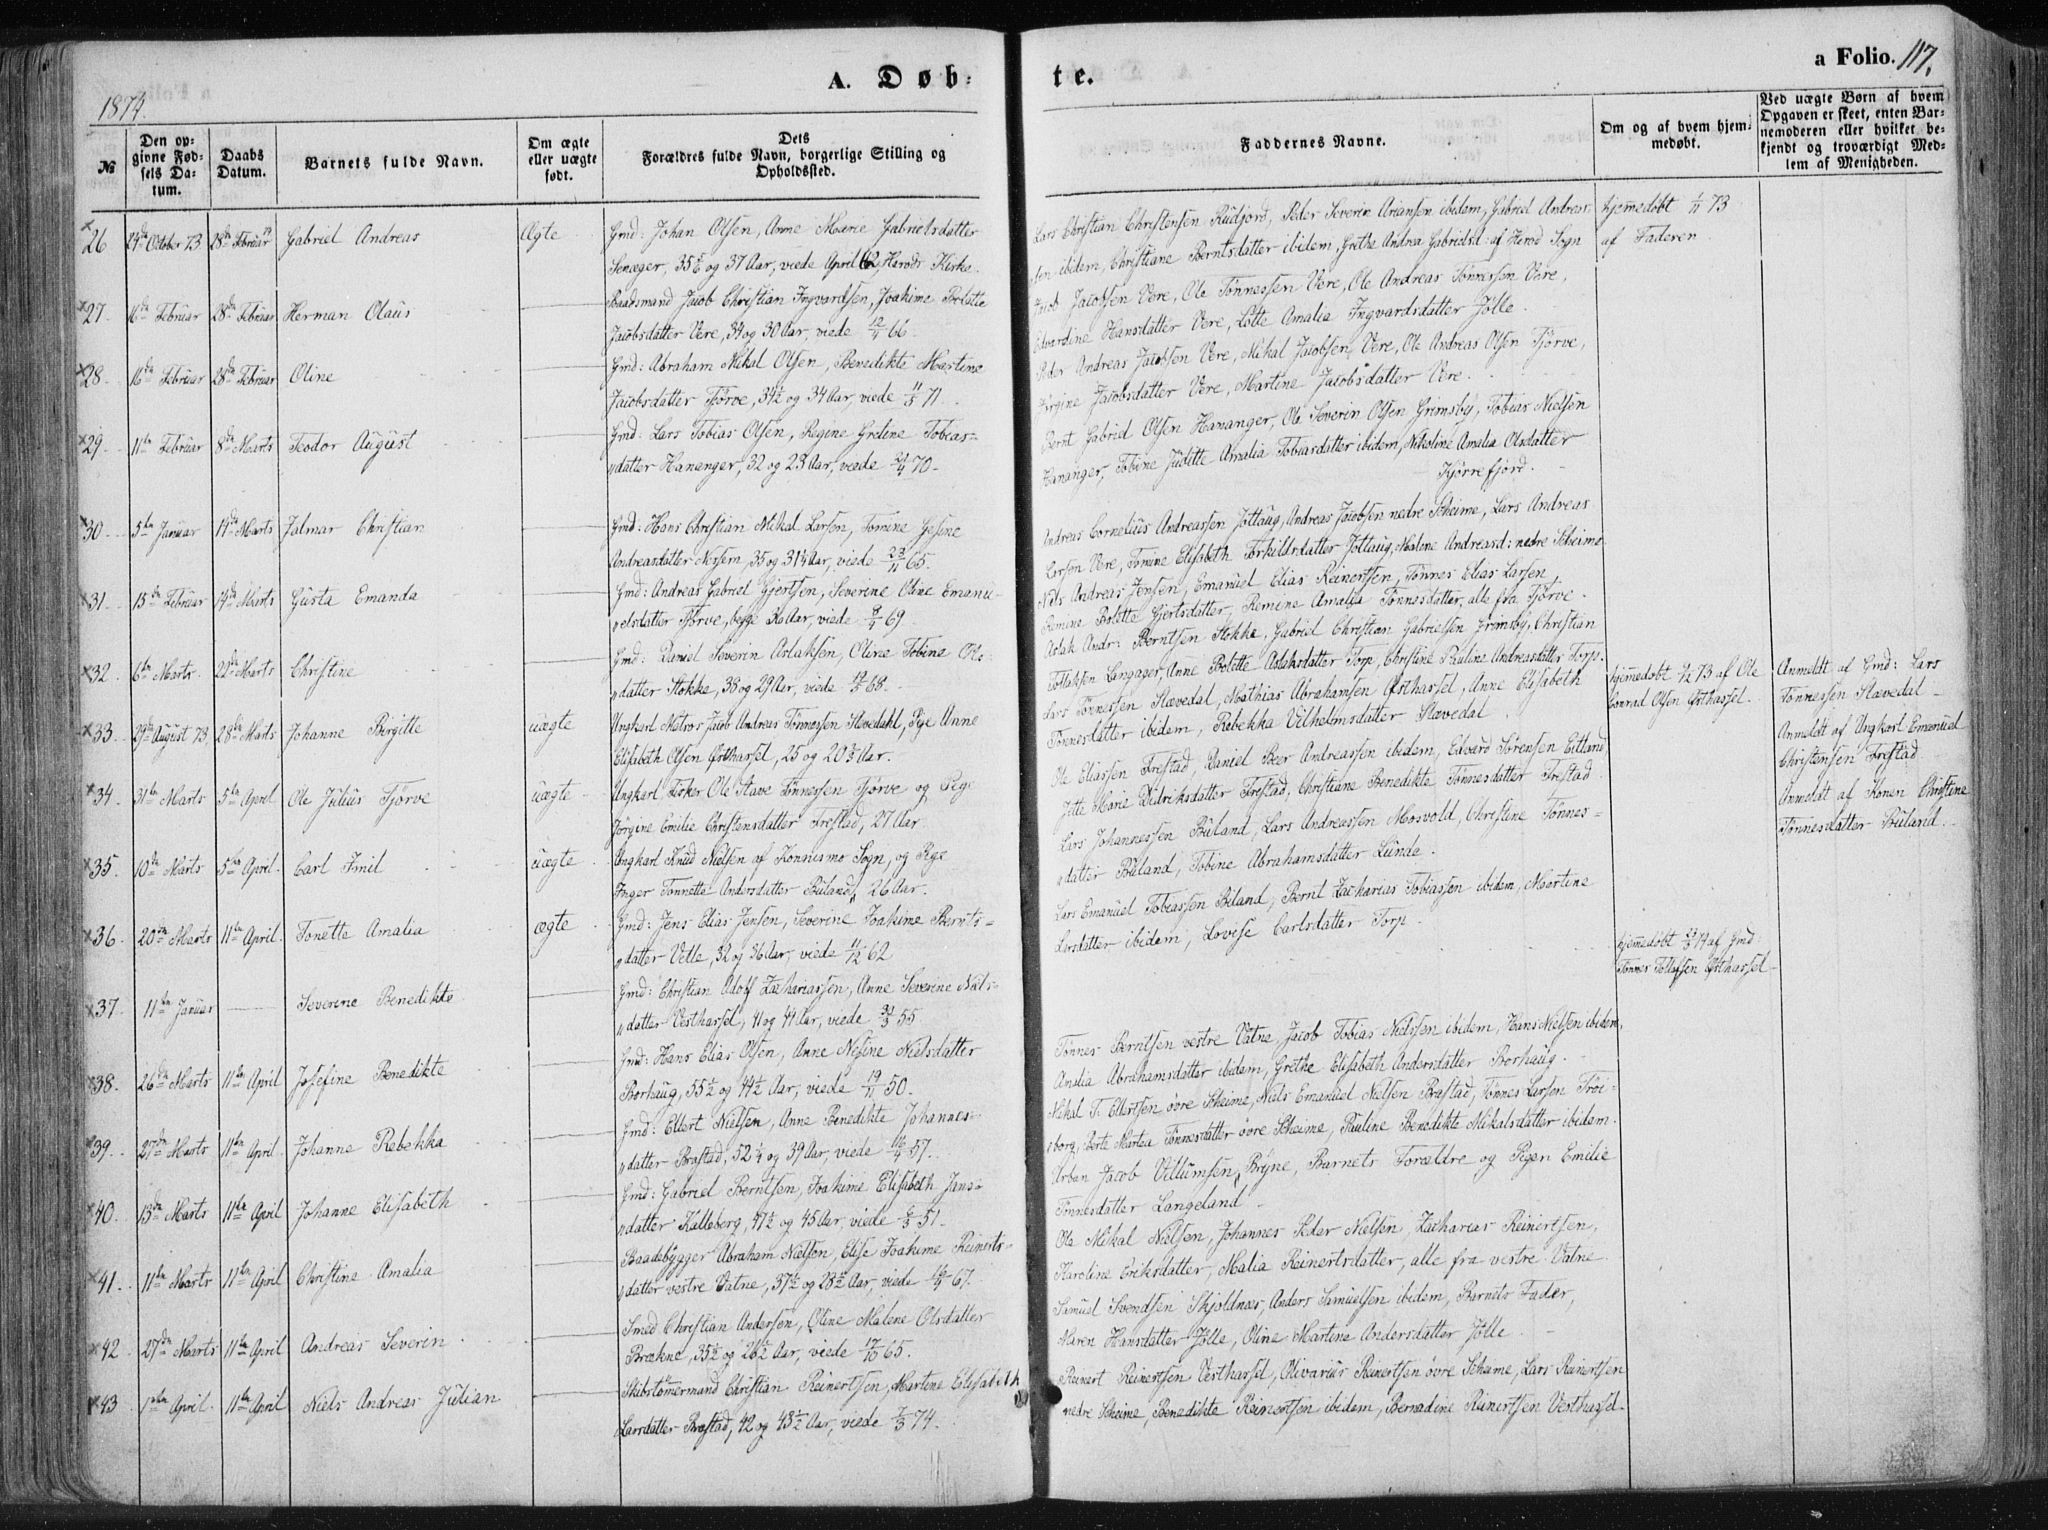 A. Døb-
te.
a Folio. 117.
1874.
№
Den op-
givne Fød-
sels Da-
tum.
Daabs
Datum.
Barnets fulde Navn.
Om ægte
eller uægte
født.
Dets
Forældres fulde Navn, borgerlige Stilling og
Opholdssted.
Faddernes Navne.
Om og af hvem hjem-
medøbt.
Ved uægte Børn af hvem
Opgaven er skeet, enten Bar-
nemoderen eller hvilket be-
kjendt og troværdigt Med-
lem af Menigheden.
26 October 73 Februar Gabriel Andreas Ægte Gmd: Johan Olsen, Anne Marie Gabrielsdatter
og 37 Aar, viede April 62, Kirke.
27. 16de Februar 28de Februar Herman Olaus Baadsmand Jacob Christian Ingvardsen, Joakime Bolette
Jacobsdatter Vere, 34 og 30 Aar, viede 66.
28. 16de Februar 28de Februar Oline Gmd: Abraham Mikal Olsen, Benedikte Martine
Jacobsdatter Tjørve, 34½ og 34 Aar, viede 71.
29. 11te Februar 8de Marts Teodor August Gmd: Lars Tobias Olsen, Regine Gretine Tobias-
datter Hananger, 32 og 23 Aar, viede 70.
30. 5te Januar 14de Marts Jalmar Christian Gmd: Hans Christian Mikal Larsen, Tomine Gesine
Andreasdatter 35 og 31¼ Aar, viede 23/11 65.
31. 15de Februar 14de Marts Gusta Emanda Gmd: Andreas Gabriel Gjertsen, Severine Oline Emanu-
elsdatter Tjørve, begge Aar, viede 69.
32. 6te Marts 22de Marts Christine Gmd: Daniel Severin Aslaksen, Oline Tobine Ols-
datter Stokke, 38 og 29 Aar, viede 68.
33. 29de August 73. 28de Marts Johanne Birgitte uægte Ungkarl Matros Jacob Andreas Tønnessen Stavedahl, Pige Anne
Elisabeth Olsen Østhassel, 25 og 20 Aar.
34. 31te Marts 5te April Ole Julius Tjörve uægte Ungkarl Fisker Ole Stave Tønnessen Tjörve og Pige
Jörgine Emilie Christensdatter Frestad, 27 Aar.
35. 10de Marts 5te April. Carl Emil uægte Ungkarl Knud Nielsen af Konnismo Sogn, og Pige
Inger Tonnette Andersdatter Büland, 26 Aar.
36. 20de Marts 11te April. Tonette Amalia ægte Gmd: Jens Elias Jensen, Severine Joakime Bernts-
datter Velle, 32 og 36 Aar, viede 11/12 62
37. 11te Januar Severine Benedikte Gmd: Christian Adolf Zachariassen, Anne Severine Niels-
datter Vesthassel, 41 og 44 Aar, viede 55
38. 26de Marts 11te April Josefine Benedikte Gmd: Hans Elias Olsen, Anne Nesine Nielsdatter
Borhaug, 55½ og 44½ Aar, viede 19/11 50.
39. 27de Marts 11te April Johanne Rebekka Gmd: Ellert Nielsen, Anne Benedikte Johannes-
datter Brastad, 52¼ og 39 Aar, viede 57.
40. 13de Marts 11te April Johanne Elisabeth Gmd: Gabriel Berntsen, Joakime Elisabeth Jans-
datter Kalleberg, 47½ og 45 Aar, viede 51.
41. 11te Marts 11te April Christine Amalia Baadebygger Abraham Nielsen, Elise Joakime Reinerts-
datter vestre Vatne, 37½ og 28½ Aar, viede 67.
42 27de Marts 11te April Andreas Severin Smed Christian Andersen, Oline Malene Olsdatter
Brækne, 35½ og 26½ Aar, viede 17/10 65.
43 April. 11te April Niels Andreas Julian Skibstømermand Christian Reinertsen, Martine Elisabeth
Larsdatter Brastad, 42 og 43½ Aar, viede 74.
Lars Christian Christensen Rudjord, Peder Severin Ariansen ibidem, Gabriel Andreas-
sen ibidem, Christiane Berntsdatter ibidem, Grethe Andrea Gabrielsd: af Sogn
hjemedøbt 1/11 73
af Faderen
Jacob Jacobsen Vere, Ole Tönnessen Vere, Ole Andreas Tönnessen Vere,
Edvardine Hansdatter Vere, Lotte Amalia Ingvardsdatter Jölle.
Peder Andreas Jacobsen Vere, Mikal Jacobsen Vere, Ole Andreas Olsen Tjörve,
Jörgine Jacobsdatter Vere, Martine Jacobsdatter Vere.
Bernt Gabriel Olsen Hananger, Ole Severin Olsen Grimsby, Tobias Nielsen
Hananger, Tobine Juditte Amalia Tobiasdatter ibidem, Nikoline Amalia Olsdatter
Kjørrefjord.
Andreas Cornelius Andreassen Jöllaug, Andreas Jacobsen nedre Skeime, Lars Andreas
Larsen Vere, Tomine Elisabeth Torkildsdatter Jöllaug, Malene Andreasd: nedre Skeime
Niels Andreas Jensen, Emanuel Elias Reinertsen, Tönnes Elias Larsen,
Remine Bolette Gjertsdatter, Remine Amalia Tönnesdatter, alle fra Tjörve.
Aslak Andr: Berntsen Stokke, Gabriel Christian Gabrielsen Grimsby, Christian
Tollaksen Langager, Anne Bolette Aslaksdatter Torp, Christine Pauline Andreasdatter Torp.
Lars Tönnessen Stavedal, Mathias Abrahamsen Østhassel, Anne Elisabeth
Tönnesdatter ibidem, Rebekka Vilhelmsdatter Stavedal.
hjemedøbt 73 af Ole
Conrad Olsen Østhassel.
Anmeldt af Gmd: Lars
Tönnessen Stavedal
Ole Eliassen Frestad, Daniel Beer Andreassen ibidem, Edvard Sörensen Eitland,
Jitte Marie Didriksdatter Frestad, Christiane Benedikte Tönnesdatter Frestad.
Anmeldt af Ungkarl Emanuel
Christensen Frestad
Lars Johannessen Büland, Lars Andreassen Mosvold, Christine Tönnes-
datter Büland, Tobine Abrahamsdatter Lunde.
Anmeldt af Konen Christine
Tönnesdatter Büland.
Lars Emanuel Tobiassen Biland, Bernt Zacharias Tobiassen ibidem, Martine
Larsdatter ibidem, Lovise Carlsdatter Torp.
hjemedøbt 74 af Gmd.
Tönnes Tollefsen Østhassel
Tönnes Berntsen vestre Vatne, Jacob Tobias Nielssen ibidem, Hans Nielsen ibidem,
Amalia Abrahamsdatter ibidem, Grethe Elisabeth Andersdatter Borhaug.
Mikal T. Ellertsen övre Skeime, Niels Emanuel Nielsen Brastad, Tönnes Larsen Tröi-
borg, Berte Martea Tönnesdatter övre Skeime, Pauline Benedikte Mikalsdatter ibidem.
Urban Jacob Villumsen Bryne, Barnets Forældre og Pigen Emilie
Tönnesdatter Langeland
Ole Mikal Nielsen, Johannes Peder Nielsen, Zacharias Reinertsen,
Karoline Eriksdatter, Malia Reinertsdatter, alle fra vestre Vatne
Samuel Svendsen Skjoldnæs, Anders Samuelsen ibidem, Barnets Fader,
Maren Hansdatter Jölle, Oline Martine Andersdatter Jölle.
Reinert Reinertsen Vesthassel, Olivarius Reinertsen övre Skeime, Lars Reinertsen
nedre Skeime, Benedikte Reinertsen ibidem, Bernadine Reinertsen Vesthassel.